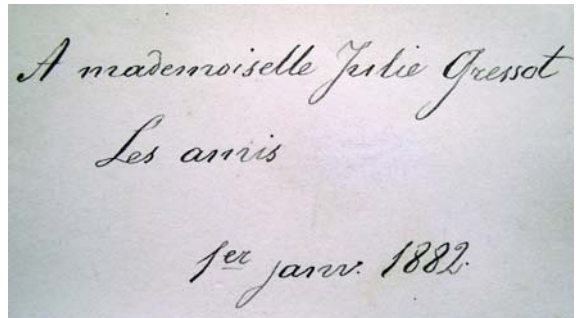 A mademoiselle Julie Gressot
Les amis
1er janv. 1882.